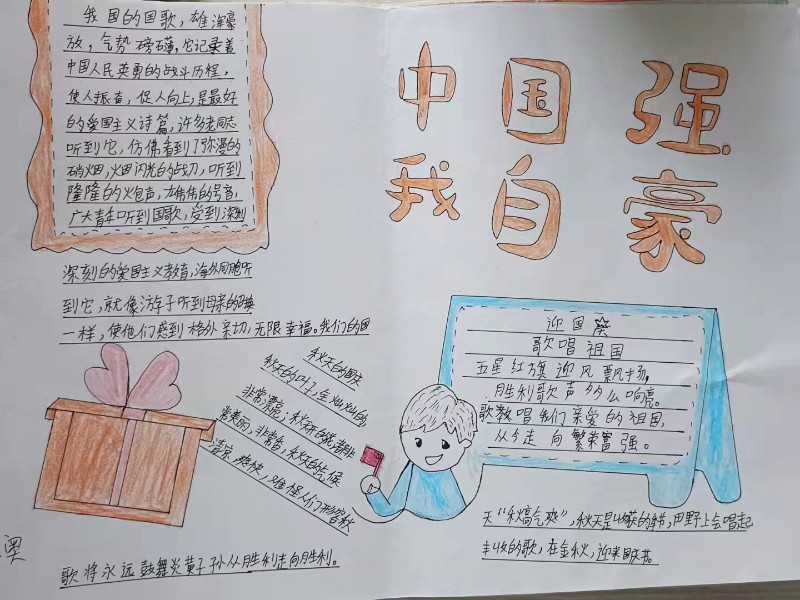 我国的国歌，雄浑豪
放，气势磅礴，它记录着
中国人民英勇的战斗历程，
使人振奋，促人向上，是最好
的爱国主义诗篇，许多老同志
听到它，仿佛看到了弥漫的
硝烟，火田闪光的战切，听到
隆隆的火包声，嘹亮的号音，
广大青年听到国歌，受到深刻
深刻的爱国主义教育，海外同胞听
到它，就像游子听到母亲的呼唤
一样，使他们感到格外亲切，无限幸福。我们的国
歌将永远鼓舞炎黄子孙从胜利走向胜利。
中国强
我自豪
迎国庆
歌唱祖国
五星红旗迎风飘扬，
胜利歌声多么响亮。
歌唱我们亲爱的祖国，
从今走向繁荣富强。
秋天的国庆
秋天的叶子，金灿灿的
非常漂亮；秋天的花都非
常美丽，非常香，秋天的气候
清凉，爽快，难怪人们形容秋
天“秋高气爽”，秋天是收获的季节，田野上会唱起
丰收的歌，在金秋，迎来国庆节。
奥